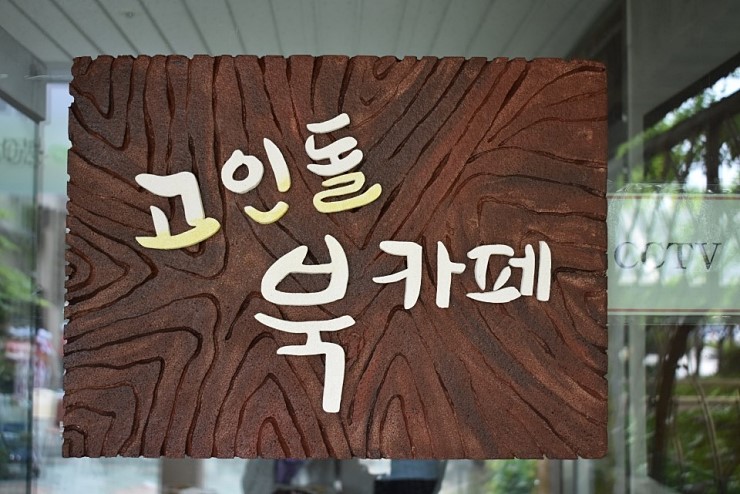 고인돌
북카페
CCTV